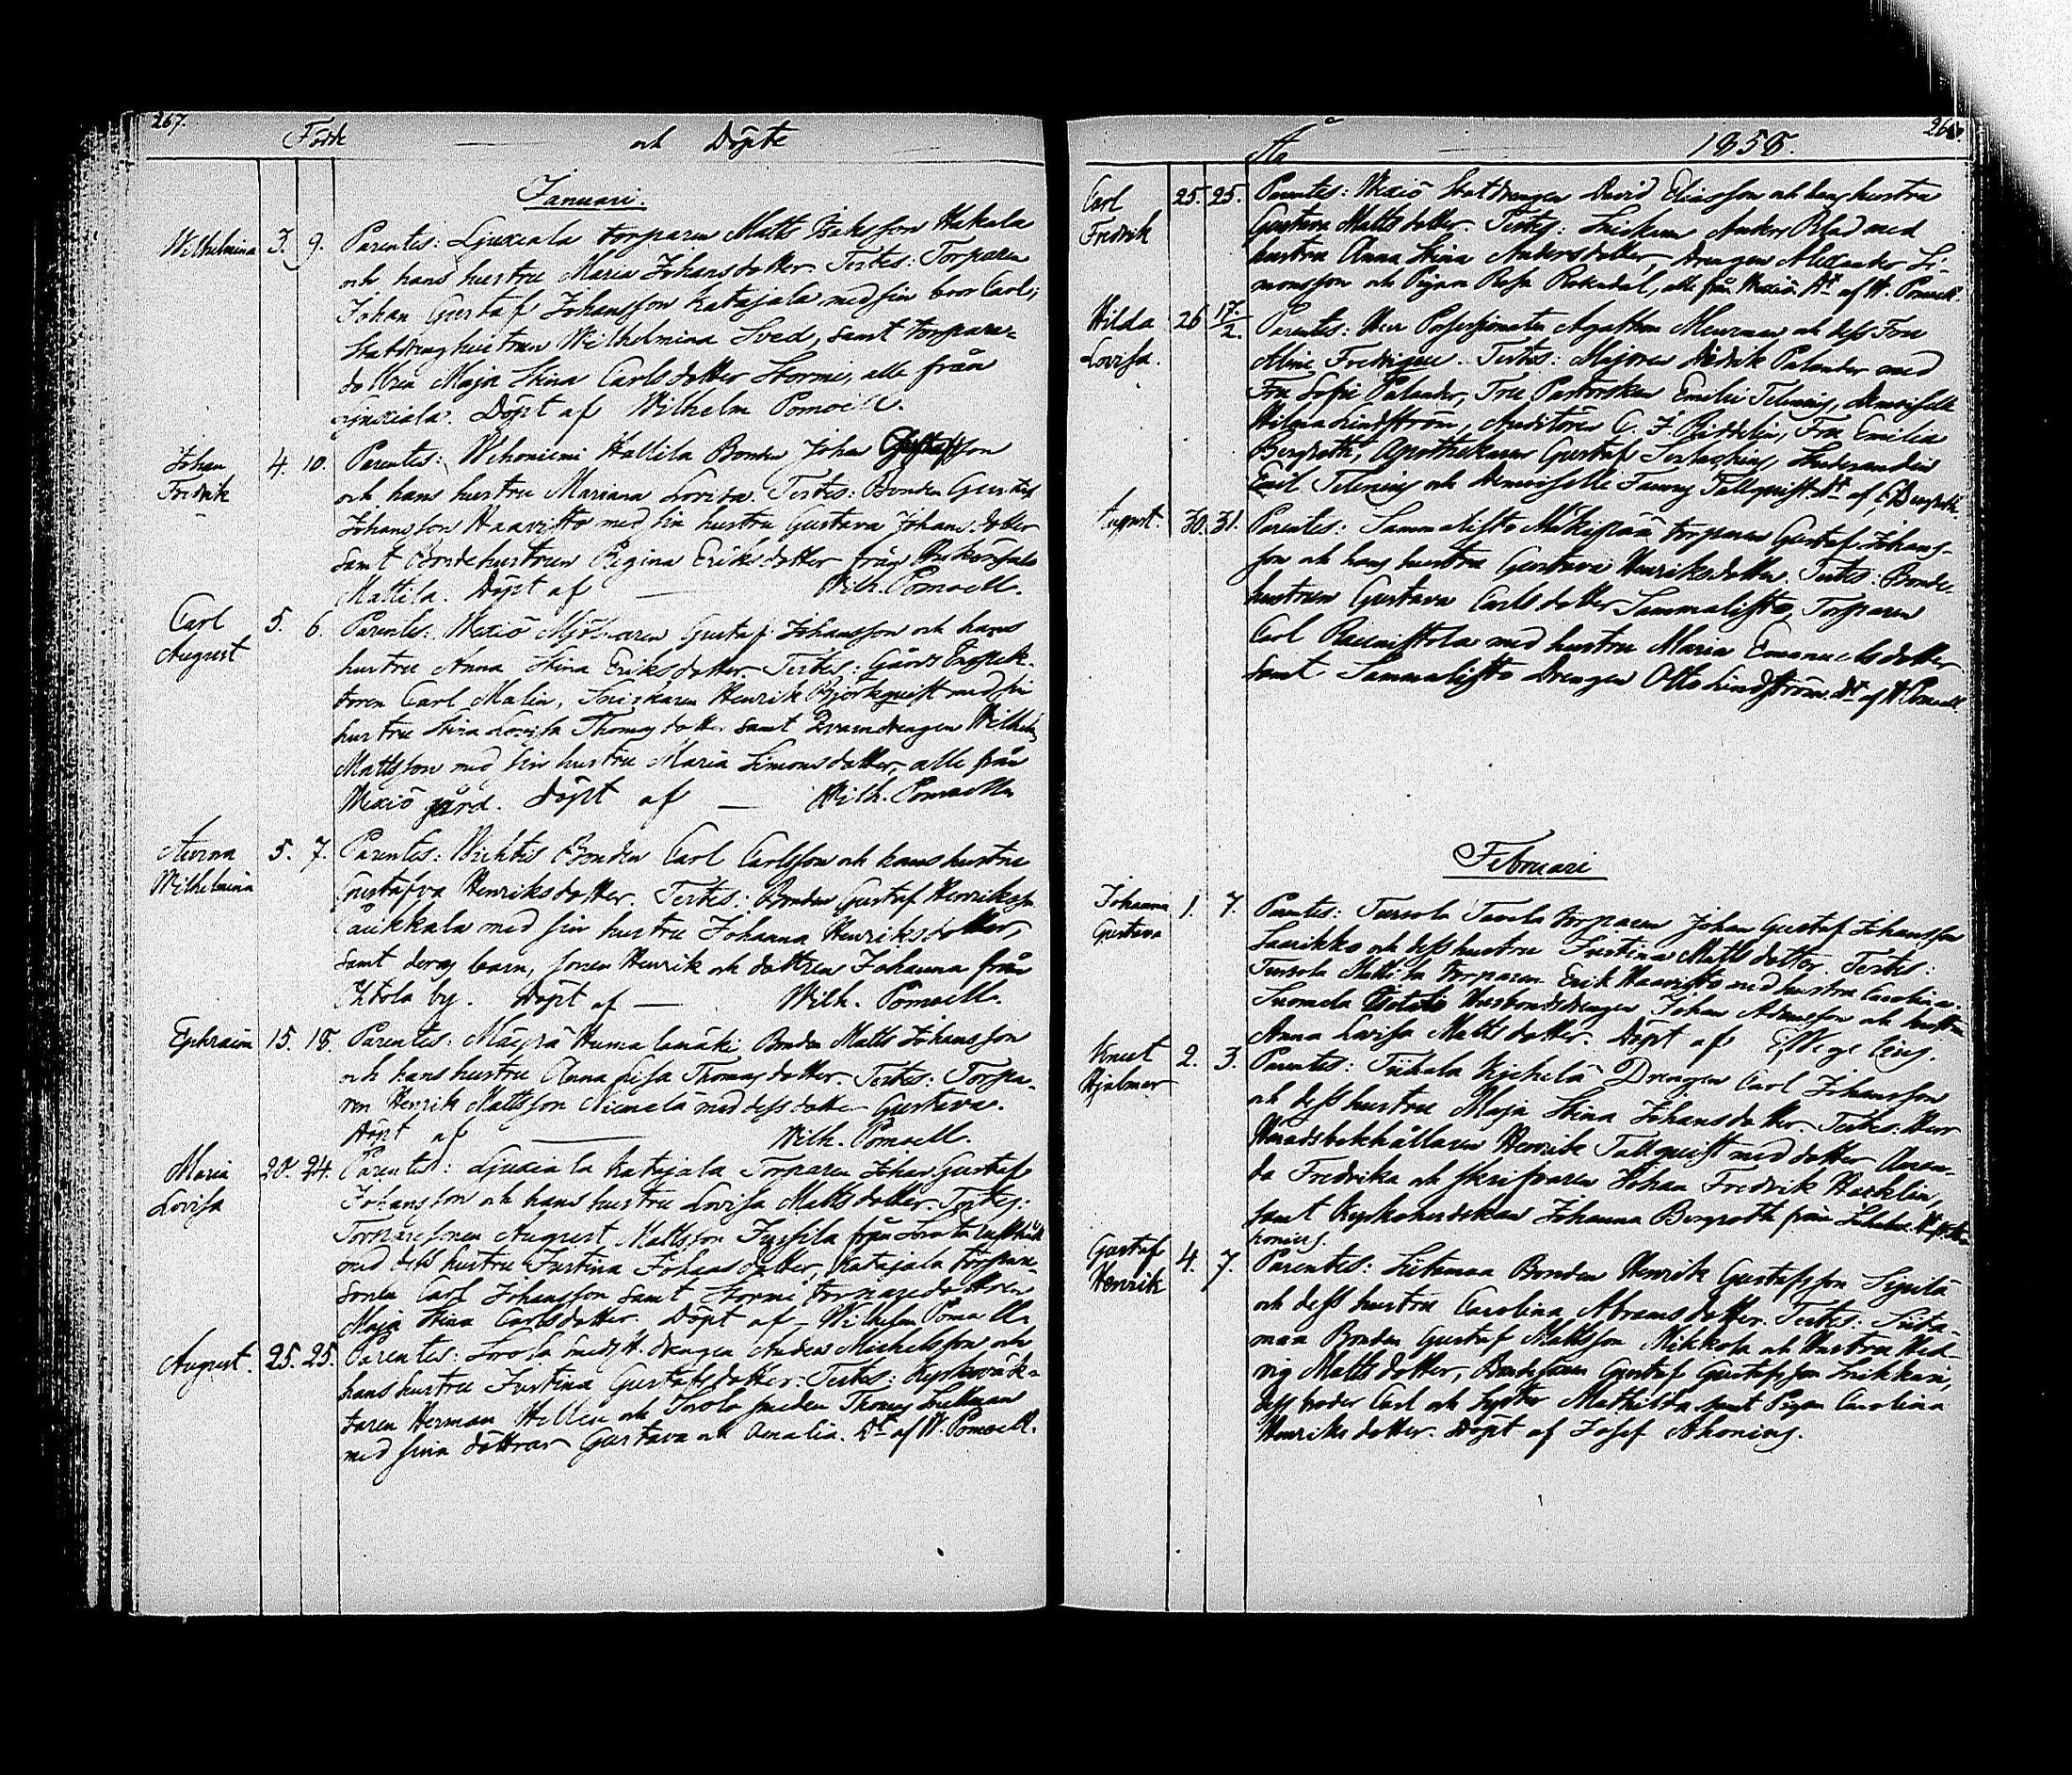 267.
Födde och Döpte
Januari.
Wilhelmina 3. 9. Parentes: Ljuxiala torparen Matts Hakala
och hans hustru Maria Johansdotter. Testes: Torparen
Johan Gustaf Johansson Katajala med sin bror Carl;
Statdrenghustrun Wilhelmina Sved, samt torpare-
dottren Maja Stina Carlsdotter Stormi, alle från
Ljuxiala. Döpt af Wilhelm Pomoell.
Johan 4. 10. Parentes: Wehoniemi Hallila Bonden Johan Gustafsson
Fredrik och hans hustru Mariana Lovisa. Testes: Bonden Gustaf
Johansson Haavisto med sin hustru Gustava Johansdotter
samt Bondehustrun Regina Eriksdotter från
Mattila. Döpt af — Wilh. Pomoell.
Carl 5. 6. Parentes: Wexiö Mjölnaren Gustaf Johansson och hans
August hustru Anna Stina Eriksdotter. Testes: Gårds Inspek-
toren Carl Malin, Snickaren Henrik Björkqvist med sin
hustru Stina Lovisa Thomasdotter samt Qvarndrengen Wilhelm
Mattsson med sin hustru Maria Simonsdotter, alle från
Wexiö gård. Döpt af — Wilh. Pomoell
5. 7. Parentes: Wichtis Bonden Carl Carlsson och hans hustru
Wilhelmina Gustafva Henriksdotter. Testes: Bonden Gustaf Henriksson
med sin hustru Johanna Henriksdotter,
samt deras barn, sonen Henrik och dottren Johanna från
Ihtola by. Döpt af — Wilh. Pomoell.
Ephraim 15. 18. Parentes: Bonden Matts Johansson
och hans hustru Anna Lisa Thomasdotter. Testes: Torpa-
ren Henrik Mattsson Niemelä med dess dotter Gustava.
Döpt af — Wilh. Pomoell.
Maria 20. 24. Parentes: Ljuxiala Katajala Torparen Johan Gustaf
Lovisa Johansson och hans hustru Lovisa Mattsdotter. Testes:
Torparesonen August Mattsson Jussila från
med dess hustru Justina Johansdotter, Katajala torpare-
sonen Carl Johansson samt Stormi torparedottren
Maja Stina Carlsdotter. Döpt af – Wilhelm Pomoell
August. 25. 25. Parentes: drengen Anders Michelsson och
hans hustru Justina Gustafsdotter. Testes: Kyrkoväk-
taren Herman Hellen och smeden Thomas Snellman
med sina döttrar Gustava och Amalia. Dt af W. Pomoell.
År 1858.
Carl 25. 25. Parentes: Wexiö Statdrengen David Eliasson och hans hustru
Fredrik Gustava Mattsdotter. Testes: Snickaren Anders Blad med
hustru Anna Stina Andersdotter, Drengen Alexander Si-
monsson och Pigan Rosa Rosendal, alle från Wexiö. Dt af W. Pomoell
Hilda 26 17./2. Parentes: Herr Possessionaten Agathon Meurman och dess Fru
Lovisa. Testes: Majoren Didrik Palander med
Fru Sofie Palander, Fru Pastorskan Emelie Telenius, Demoiselle
Hilma Lindström, Auditören C. J. Fru Emelie
Bergroth, Apothekaren Gustaf Studeranden
Emil Telenius och Demoiselle Fanny Tallqvist Dt af
August. 30. 31. Parentes: Sammalisto Mäkipää torparen Gustaf Johans-
son och hans hustru Gustava Henriksdotter. Testes: Bonde-
hustrun Gustava Carlsdotter Sammalisto, Torparen
Carl med hustru Maria Emanuelsdotter
samt Sammalisto Drengen Otto Lindström. Dt af W. Pomoell.
Februari
Johanna 1. 7. Parentes: Tursola torparen Johan Gustaf Johansson
Gustava Saarikko och dess hustru Justina Mattsdotter. Testes:
Tursola Mattila torparen Erik Haavisto med hustru Carolina.
Suomela Husbondsdrengen Johan Adamsson och hustru
Anna Lovisa Mattsdotter. Döpt af
Ernst 2. 3. Parentes: Tiihala Drengen Carl Johansson
Hjalmar och dess hustru Maja Stina Johansdotter. Testes: Herr
Häradsbokhållaren Henrik Tallqvist med dotter Aman-
da Fredrika och skrifvaren Johan Fredrik Hacklin,
samt Kyrkoherdskan Johanna Bergroth från
Gustaf 4. 7. Parentes: Liitamaa Bonden Henrik Gustafsson
Henrik och dess hustru Carolina Abramsdotter. Testes: Liita-
maa Bonden Gustaf Mattsson Mikkola och Hustru Hed-
vig Mattsdotter, Gustaf Gustafsson
dess broder Carl och Syster Mathilda samt Pigan Carolina
Henriksdotter. Döpt af Josef Ahonius.